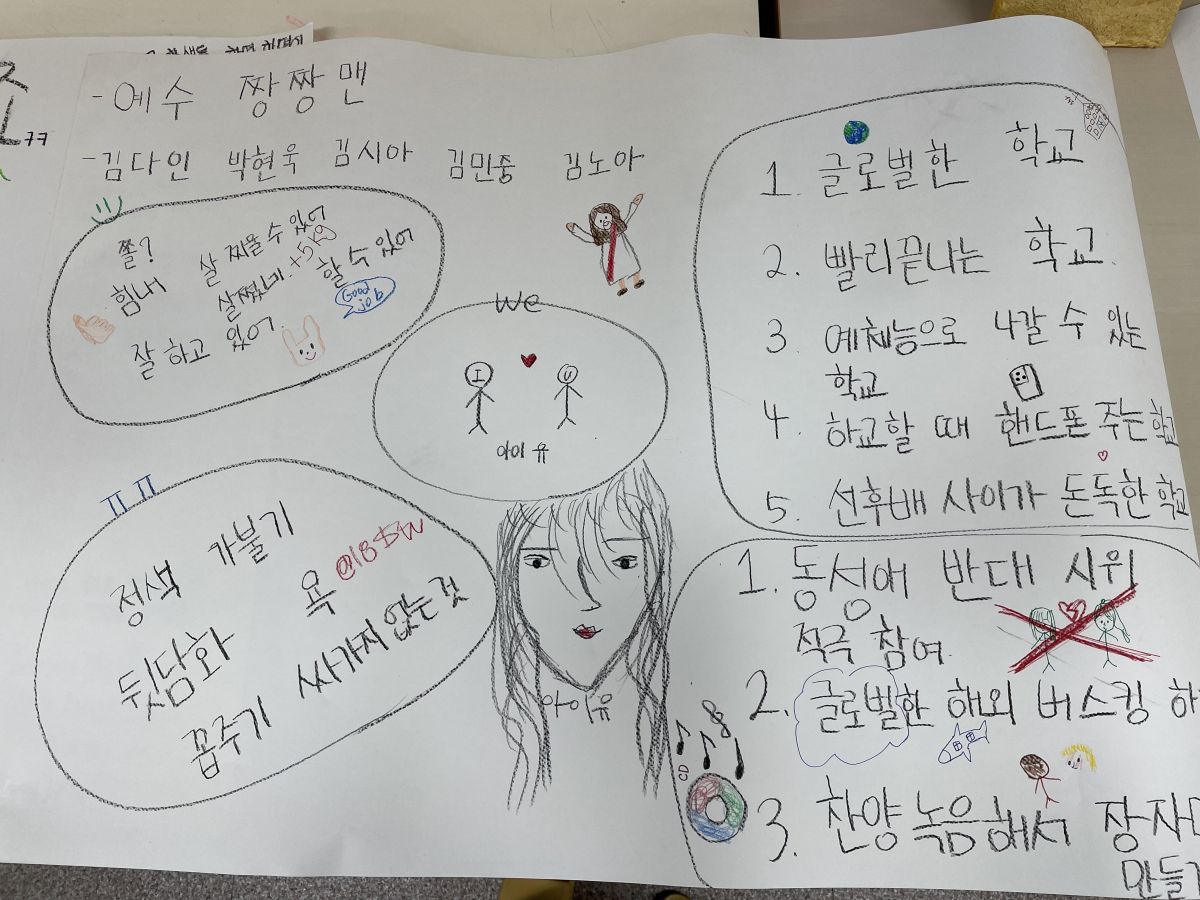 - 예수 짱짱맨
- 김다인 박현욱 김시아 김민중 김노아
쫄?
힘내
살 찌울 수 있어
살쪘네 +5kg
할 수 있어
잘 하고 있어
Good
job
we
I U
아이유
ㅠㅠ
정색 갸불기
뒷담화
욕 @18$W
꼽주기 싸가지 없는 것
아이유
1. 글로벌한 학교
2. 빨리끝나는 학교.
3. 예체능으로 나갈 수 있는
학교
4. 하교할 때 핸드폰 주는 학교
5. 선후배 사이가 돈독한 학교
1. 동성애 반대 시위
적극 참여.
2. 글로벌한 해외 버스킹 하
CD
3. 찬양 녹음해서 장자
만들기
조
ㅋㅋ